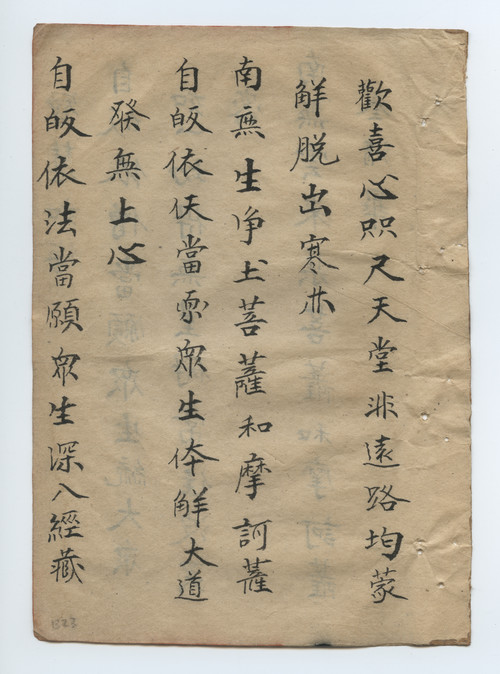 歡喜心咫尺天堂非遠路均蒙
觧脱出寒
南無生净土菩薩和摩訶薩
自皈依仸當眾生体觧大道
發無上心
自皈依法當願眾生深入經藏